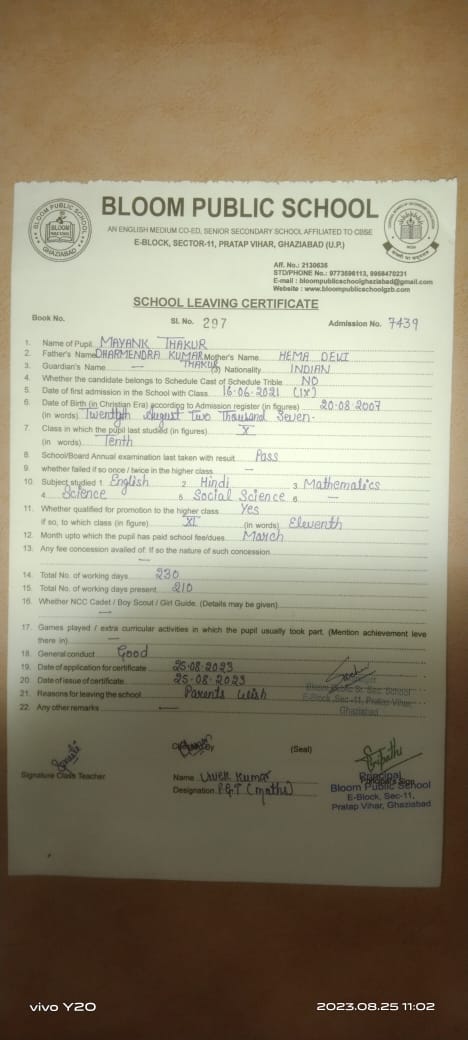 BLOOM PUBLIC SCHOOL
BLOOM PUBLIC SCHOOL
GHAZIABAD
AN ENGLISH MEDIUM CO-ED, SENIOR SECONDARY SCHOOL AFFILIATED TO CBSE
E-BLOCK, SECTOR-11, PRATAP VIHAR, GHAZIABAD (U.P.)
Aff. No.: 2130635
STD/PHONE No.: 9773596113, 9958470231
E-mail : bloompublicschoolghaziabad@gmail.com
Website : www.bloompublicschoolgzb.com
SCHOOL LEAVING CERTIFICATE
Book No. Sl. No. 297 Admission No. 7439
1. Name of Pupil MAYANK THAKUR
2. Father's Name DHARMENDRA KUMAR THAKUR Mother's Name HEMA DEVI
3. Guardian's Name — (3) Nationality INDIAN
4. Whether the candidate belongs to Schedule Cast of Schedule Trible NO
5. Date of first admission in the School with Class 16-06-2021 (IX)
6. Date of Birth (in Christian Era) according to Admission register (in figures) 20-08-2007
(in words) Twentyth August Two Thousand Seven-
7. Class in which the pupil last studied (in figures) X
(in words) Tenth
8. School/Board Annual examination last taken with result Pass
9. whether failed if so once / twice in the higher class —
10. Subject studied 1 English 2. Hindi 3. Mathematics
4. Science 5. Social Science 6 —
11. Whether qualified for promotion to the higher class Yes
if so, to which class (in figure) XI (in words) Eleventh
12. Month upto which the pupil has paid school fee/dues March
13. Any fee concession availed of: If so the nature of such concession
—
14. Total No. of working days 230
15. Total No. of working days present 210
16. Whether NCC Cadet / Boy Scout / Girl Guide. (Details may be given)
—
17. Games played / extra curricular activities in which the pupil usually took part. (Mention achievement leve
there in) —
18. General conduct Good
19. Date of application for certificate 25-08-2023
20. Date of issue of certificate 25-08-2023
21. Reasons for leaving the school Parents wish
22. Any other remarks —
Sr. Sec. School
E-Block, Sec-11, Pratap Vihar,
Ghaziabad
(Seal)
Signature Class Teacher
Name Vivek Kumar
Designation P.G.T (maths)
Principal
Bloom Public School
E-Block, Sec-11,
Pratap Vihar, Ghaziabad
vivo Y20
2023.08.25 11:02